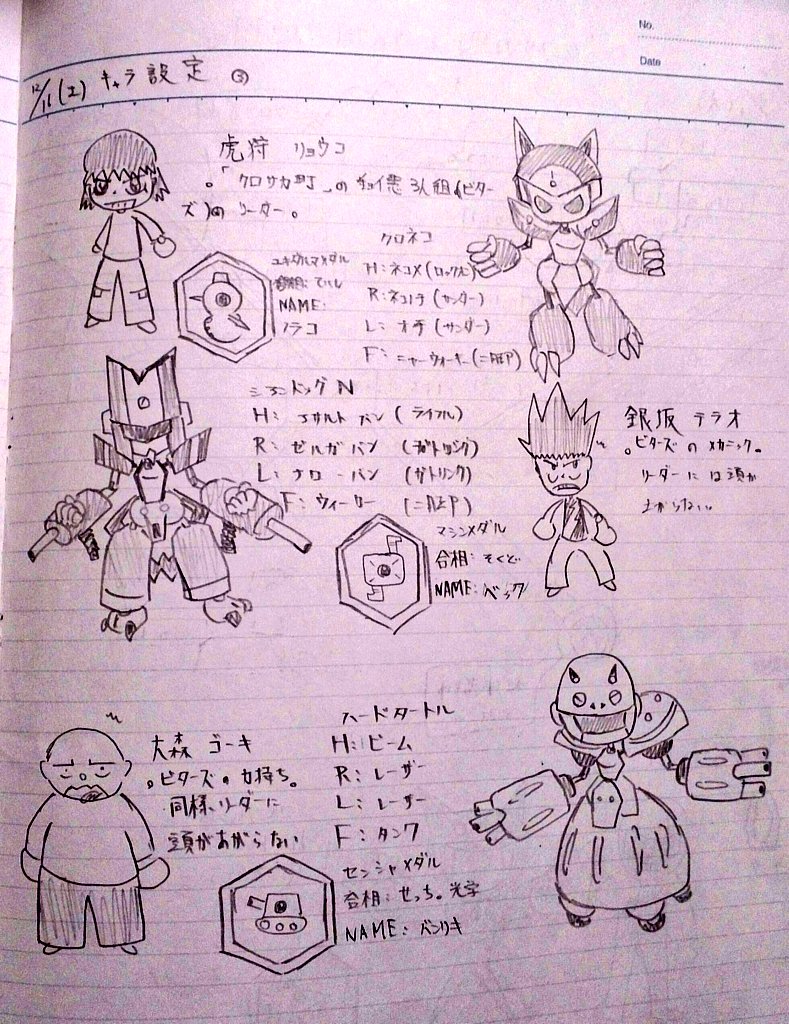 No.
Date
12/16(土) キャラ設定 ③
虎狩 リョウコ
。「クロサカ町」のチョイ悪3人組(ビター
ズ)のリーダー。
クロネコ
ユキダルマメダル
H:ネコメ(ロックル)
合相:てルル
R:ネコノテ(サンダー)
NAME:
L:オテ(サンダー)
ノラコ
F:ニャーウォーカー(二脚)
ドッグN
H:アサルトバン(ライフル)
R:ゼルガバン(ガトリング)
L:ナローバン(ガトリング)
F:ウィーロー(二脚)
銀坂 テラオ
。ビターズのメカニック。
リーダーには頭が
上がらない。
マシンメダル
合相:そくど
NAME:ベック
大森 ゴーキ
。ビターズの力持ち。
同様、リーダーに
頭があがらない
ハードタートル
H:ビーム
R:レーザー
L:レーザー
F:タンク
センシャメダル
合相:せっち。光学
NAME:バンリキ